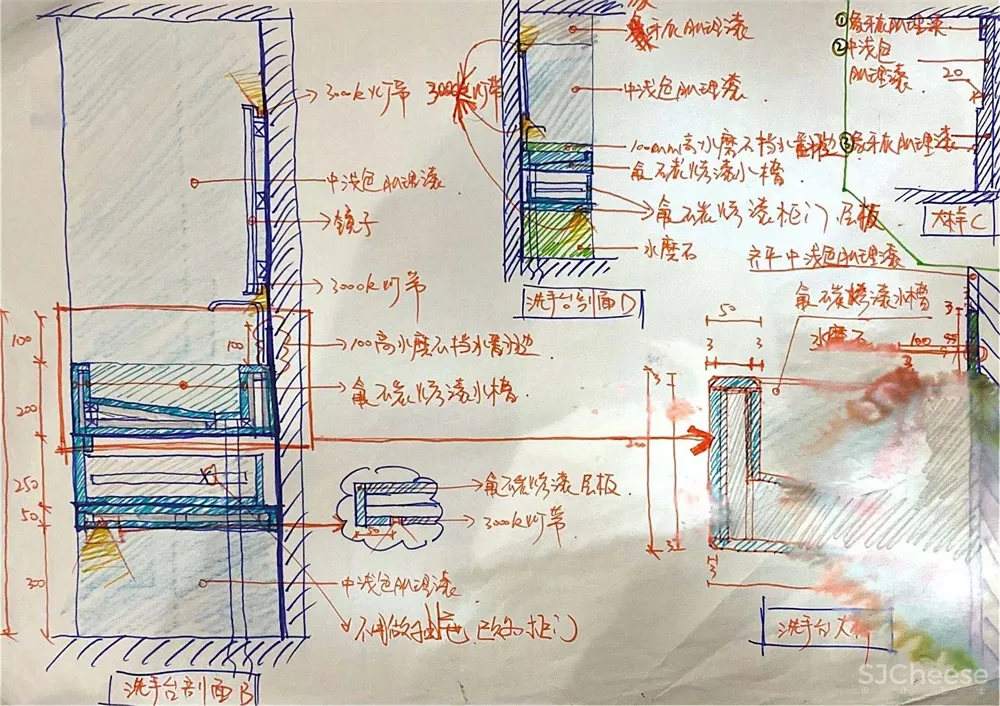 3000k灯带
中浅色肌理漆
镜子
3000k灯带
100高水磨石档水翻边
氟碳烤漆水槽
100
100
200
250
50
300
氟碳烤漆层板
3000k灯带
50
中浅色肌理漆
不用做抽屉 已改为柜门
洗手台剖面B
象牙灰肌理漆
3000k灯带
中浅色肌理漆
100mm高水磨石档水翻边
氟碳烤漆水槽
氟碳烤漆柜门.层板
水磨石
洗手台剖面D
①象牙灰肌理漆
②中浅色
肌理漆
20
③象牙灰肌理漆
大样C
齐平中浅色肌理漆
氟碳烤漆水槽
水磨石
50
3
3
3
100
3
3
3
3
洗手台大样
SJCheese